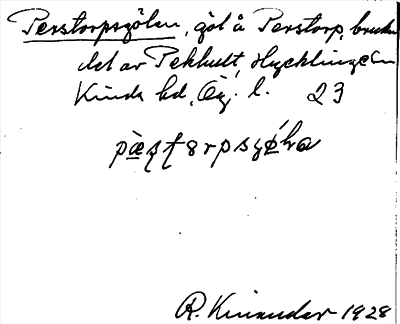 Perstorpsgölen, göl å Perstorp, bruk
del av Pekhult, Hycklinge sn
Kinds hd, Ög. l. 23
R. Kinander 1928